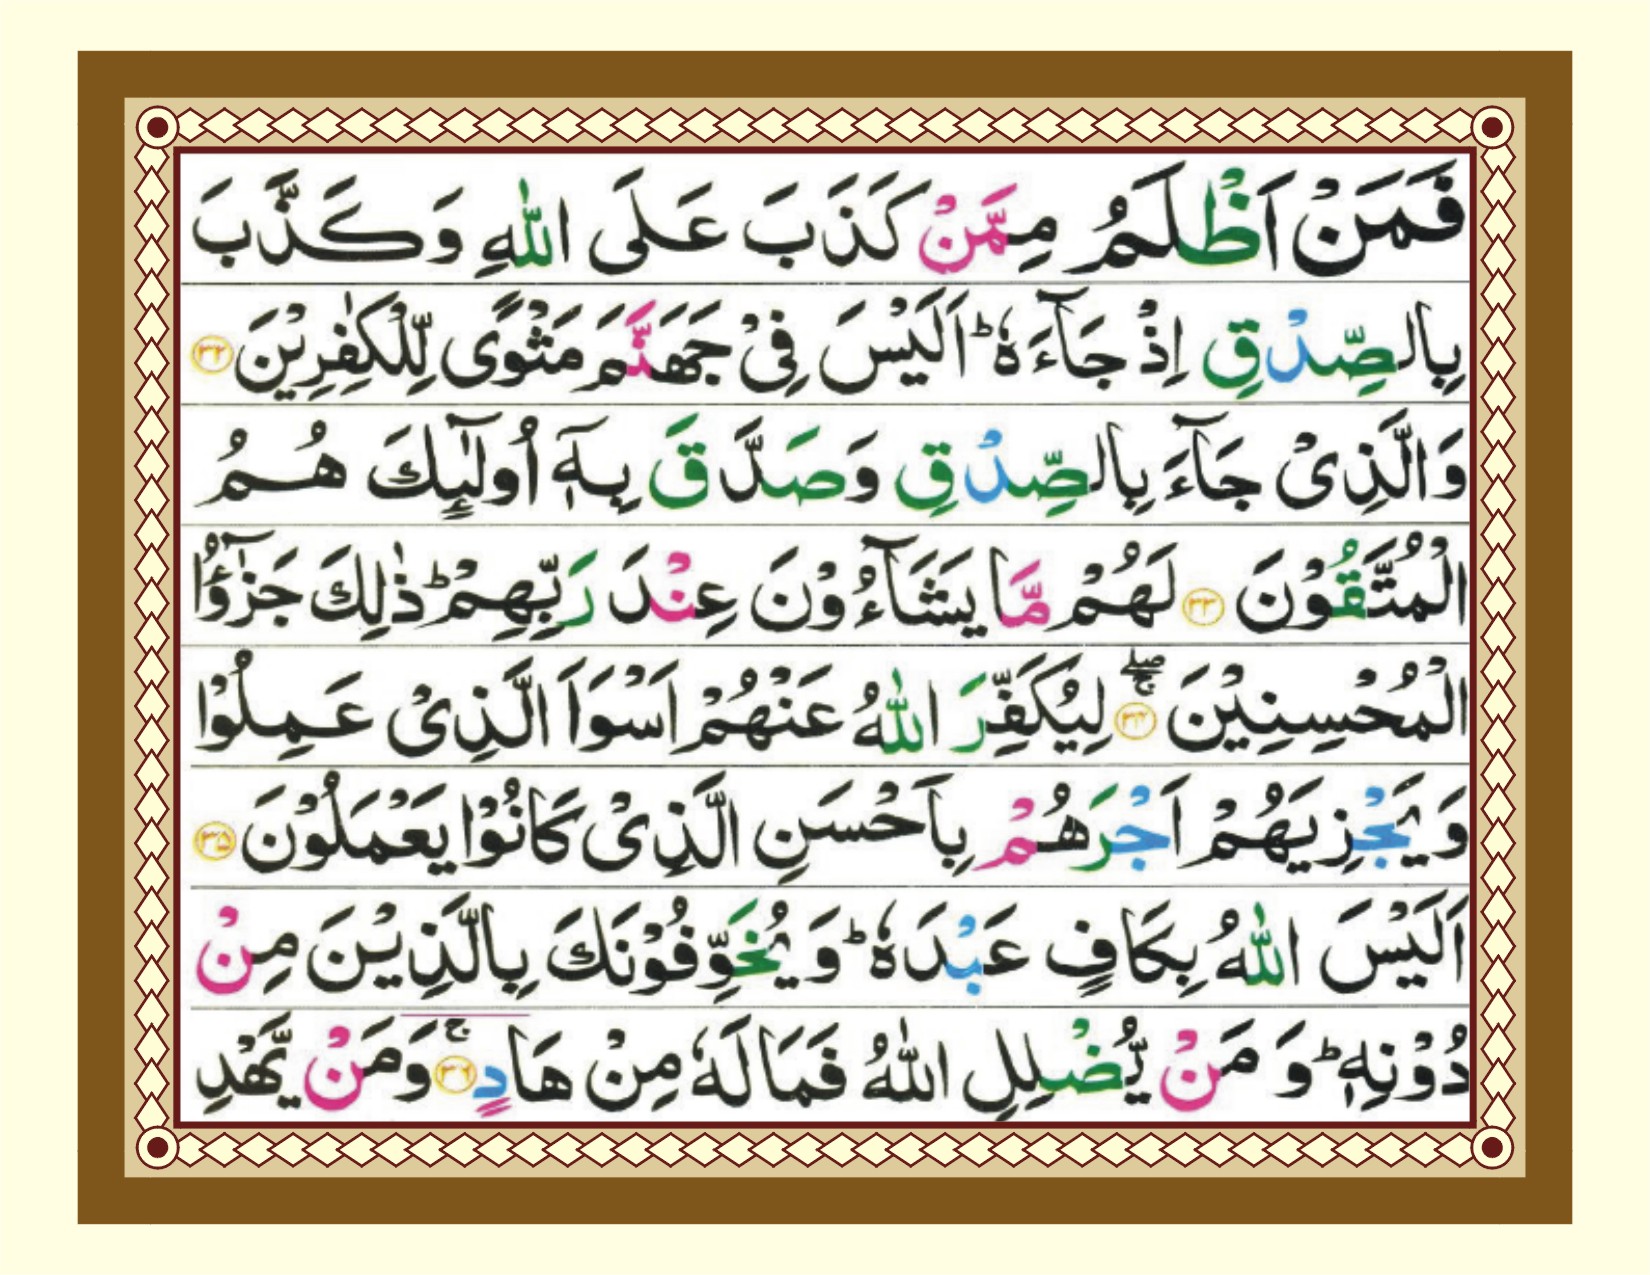 فَمَنْ اَظْلَمُ مِمَّنْ كَذَبَ عَلَى اللّٰهِ وَكَذَّبَ
بِالصِّدْقِ اِذْ جَآءَهٗ ؕ اَلَيْسَ فِيْ جَهَنَّمَ مَثْوًى لِّلْكٰفِرِيْنَ ۳۲
وَالَّذِيْ جَآءَ بِالصِّدْقِ وَصَدَّقَ بِهٖٓ اُولٰٓئِكَ هُمُ
الْمُتَّقُوْنَ ۳۳ لَهُمْ مَّا يَشَآءُوْنَ عِنْدَ رَبِّهِمْ ؕ ذٰلِكَ جَزٰٓؤُا
الْمُحْسِنِيْنَ ۳۴ ۚۖ لِيُكَفِّرَ اللّٰهُ عَنْهُمْ اَسْوَاَ الَّذِيْ عَمِلُوْا
وَيَجْزِيَهُمْ اَجْرَهُمْ بِاَحْسَنِ الَّذِيْ كَانُوْا يَعْمَلُوْنَ ۳۵
اَلَيْسَ اللّٰهُ بِكَافٍ عَبْدَهٗ ؕ وَيُخَوِّفُوْنَكَ بِالَّذِيْنَ مِنْ
دُوْنِهٖ ؕ وَمَنْ يُّضْلِلِ اللّٰهُ فَمَا لَهٗ مِنْ هَادٍ ۳۶ ۚ وَمَنْ يَّهْدِ